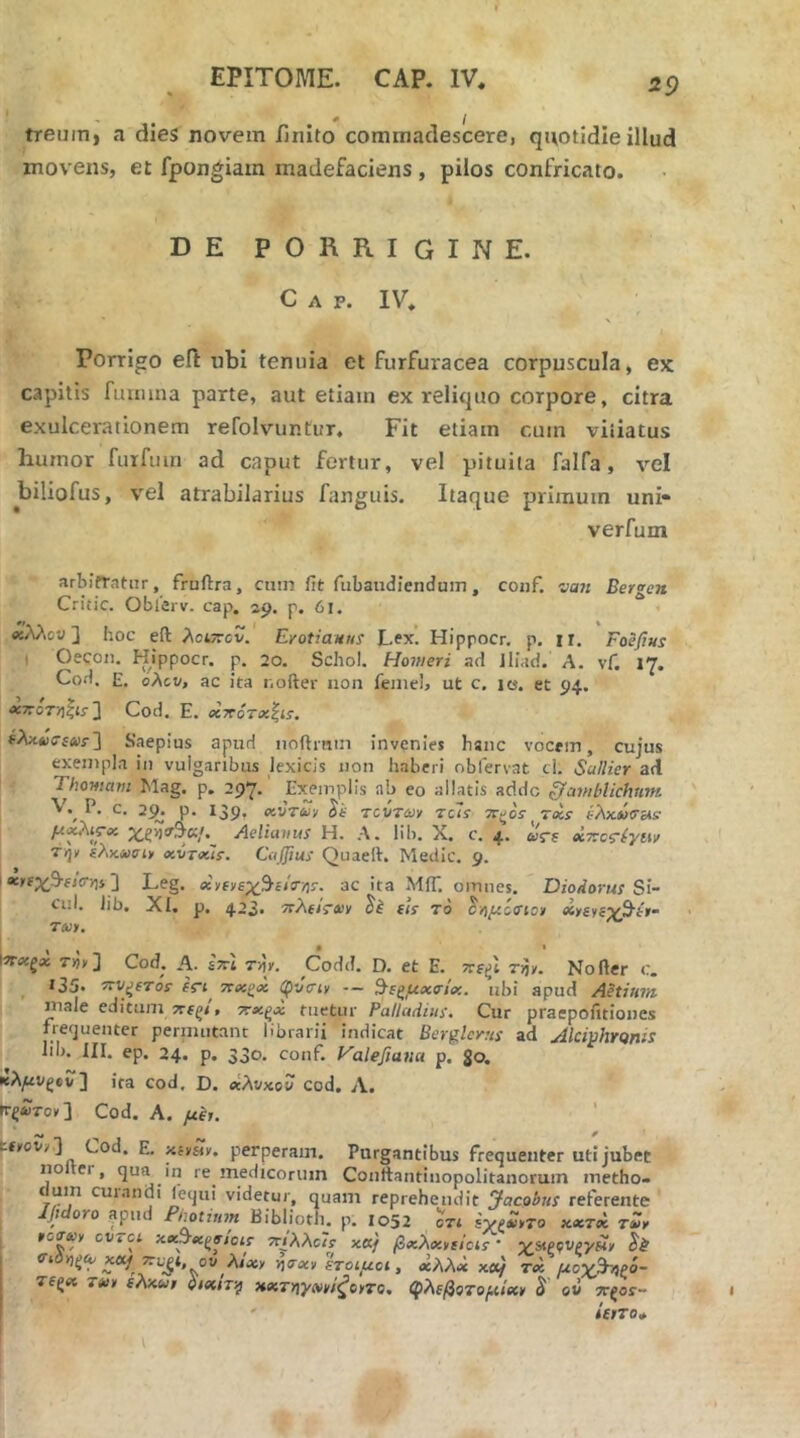 EPITOME. CAP. IV. 29
treum, a dies novem finito commadescere, quotidie illud
movens, et fpongiam madefaciens, pilos confricato.
DE PORRIGINE.
CAP. IV.
Porrigo eft ubi tenuia et furfuracea corpuscula, ex
capitis fumma parte, aut etiam ex reliquo corpore, citra
exulcerationem refolvuntur. Fit etiam cum vitiatus
humor furfum ad caput fertur, vel pituita falfa, vel
biliofus, vel atrabilarius fanguis. Itaque primum uni-
verfum
arbitratur, fruftra, cum fit fubaudiendum, conf. van Bergen
Critic. Obferv. cap. 29. p. 61.
ἄλλου] hoc eft λοιποῦ. Erotianus Lex. Hippocr. p. 11. Foëfius
Oecon. Hippocr. p. 20. Schol. Homeri ad Iliad. A. vf. 17.
Cod. E. ὅλου, ac ita nofter non femel, ut c. 10. et 94.
ἀπότηξις] Cod. E. ἀπόταξις.
ἑλκώσεως] Saepius apud noftrum invenies hanc vocem, cujus
exempla in vulgaribus lexicis non haberi obfervat cl. Sallier ad
Thomam Mag. p. 297. Exemplis ab eo allatis adde Jamblichum
V. P. c. 29. p. 139. αὐτῶν δὲ τούτων τοῖς πρὸς τὰς ἑλκώσεις
μάλιστα χρῆσθαι. Aelianus H. A. lib. X. c. 4. ὥστε ἀποστέγειν
τὴν ἕλκωσιν αὐταῖς. Caffius Quaeft. Medic. 9.
ἀνεχθείσης] Leg. ἀνενεχθείσης. ac ita Mff. omnes. Diodorus Si-
cul. lib. XI. p. 423. πλείστων δὲ εἰς τὸ δημόσιον ἀνενεχθέν-
των.
παρὰ τὴν] Cod. A. ἐπὶ τὴν. Codd. D. et E. περὶ τὴν. Nofter c.
135. πυρετός ἐστι παρὰ φύσιν -- θερμασία. ubi apud Aëtium
male editum περὶ, παρὰ tuetur Palladius. Cur praepofitiones
frequenter permutant librarii indicat Berglerus ad Alciphronis
lib. III. ep. 24. p. 330. conf. Valefiana p. 80.
ἁλμυροῦ] ita cod. D. ἁλυκοῦ cod. A.
πρῶτον] Cod. A. μέν.
κενοῦν] Cod. E. κενεῖν. perperam. Purgantibus frequenter uti jubet
nofter, qua in re medicorum Conftantinopolitanorum metho-
dum curandi fequi videtur, quam reprehendit Jacobus referente
Ifidoro apud Photium Biblioth. p. 1052 ὅτι ἐχρῶντο κατὰ τῶν
νόσων οὗτοι καθαρσίοις πολλοῖς καὶ βαλανείοις· χειρουργῶν δὲ
σιδήρῳ καὶ πυρὶ, οὐ λίαν ἦσαν ἕτοιμοι, ἀλλὰ καὶ τὰ μοχθηρό-
τερα τῶν ἑλκῶν διαίτῃ κατηγωνίζοντο. φλεβοτομίαν δ' οὐ προσ-
ίεντο.